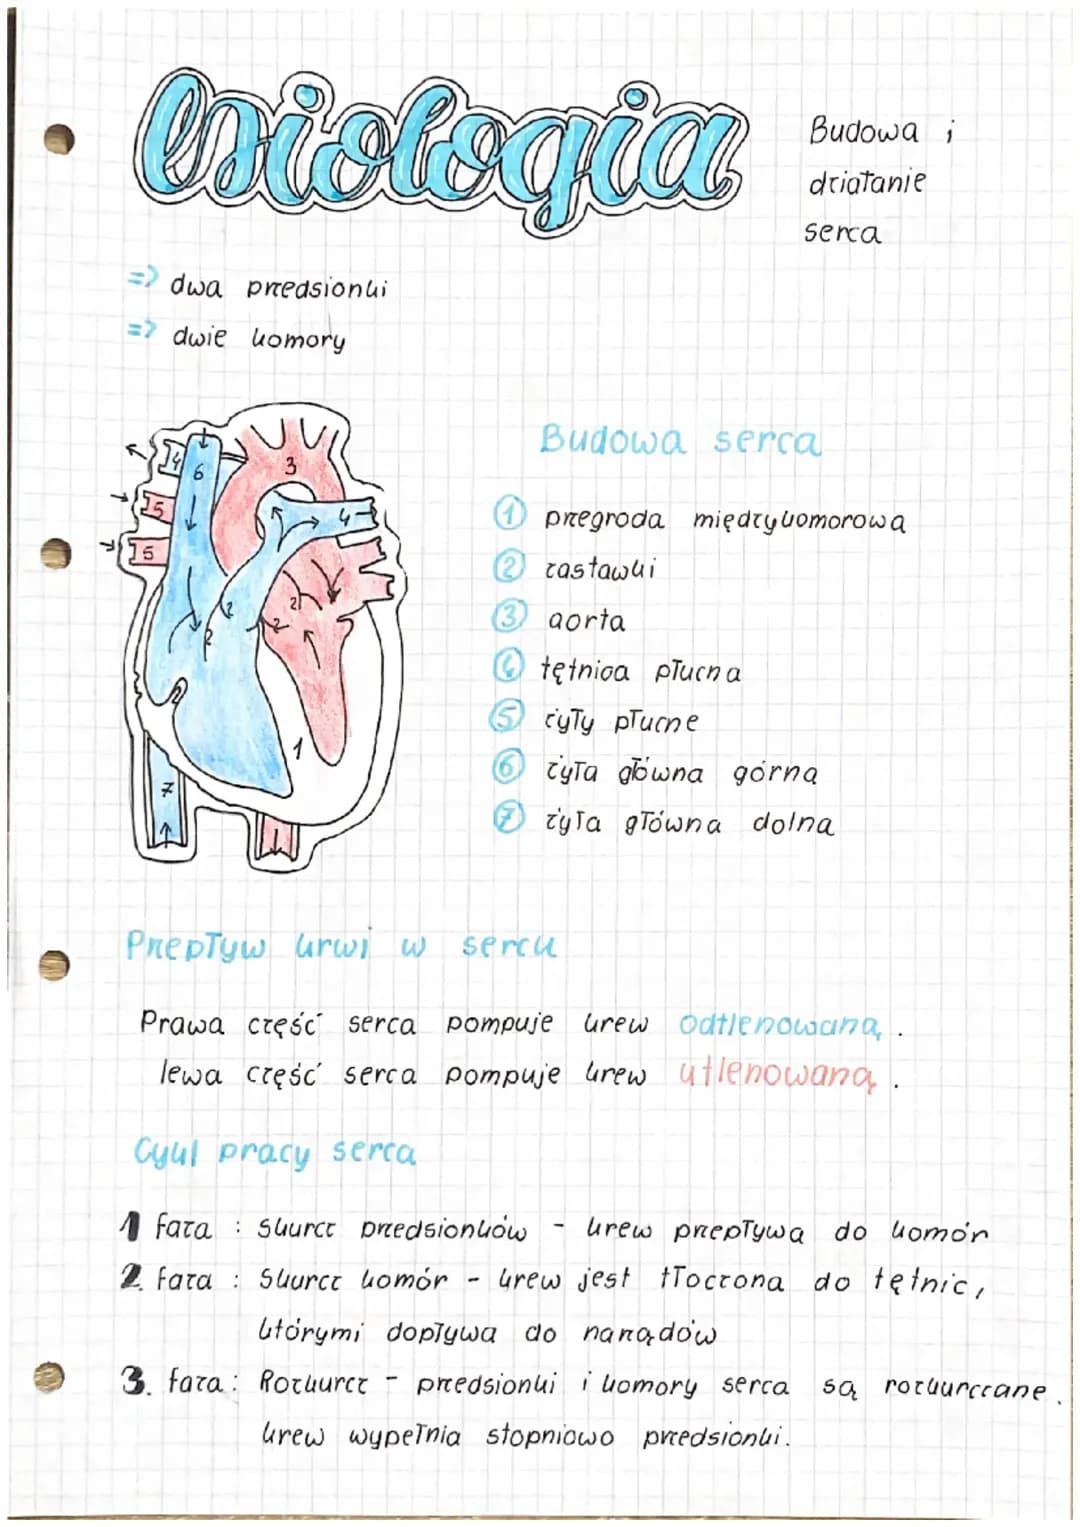 biologia
Budowa i
działanie
serca
=> dwa przedsionki
=> dwie komory
Budowa serca
1 przegroda międzykomorowa
2 zastawki
3 aorta
4 tętnica płucna
5 żyły płucne
6 żyła główna górna
7 żyła główna dolna
4
6
3
5
4
5
2
2
2
2
1
7
Przepływ krwi w sercu
Prawa część serca pompuje krew odtlenowaną.
lewa część serca pompuje krew utlenowaną.
Cykl pracy serca
1 faza : Skurcz przedsionków - krew przepływa do komór
2. faza : Skurcz komór - krew jest tłoczona do tętnic,
którymi dopływa do narządów
3. faza: Rozkurcz - przedsionki i komory serca są rozkurczane.
krew wypełnia stopniowo przedsionki.